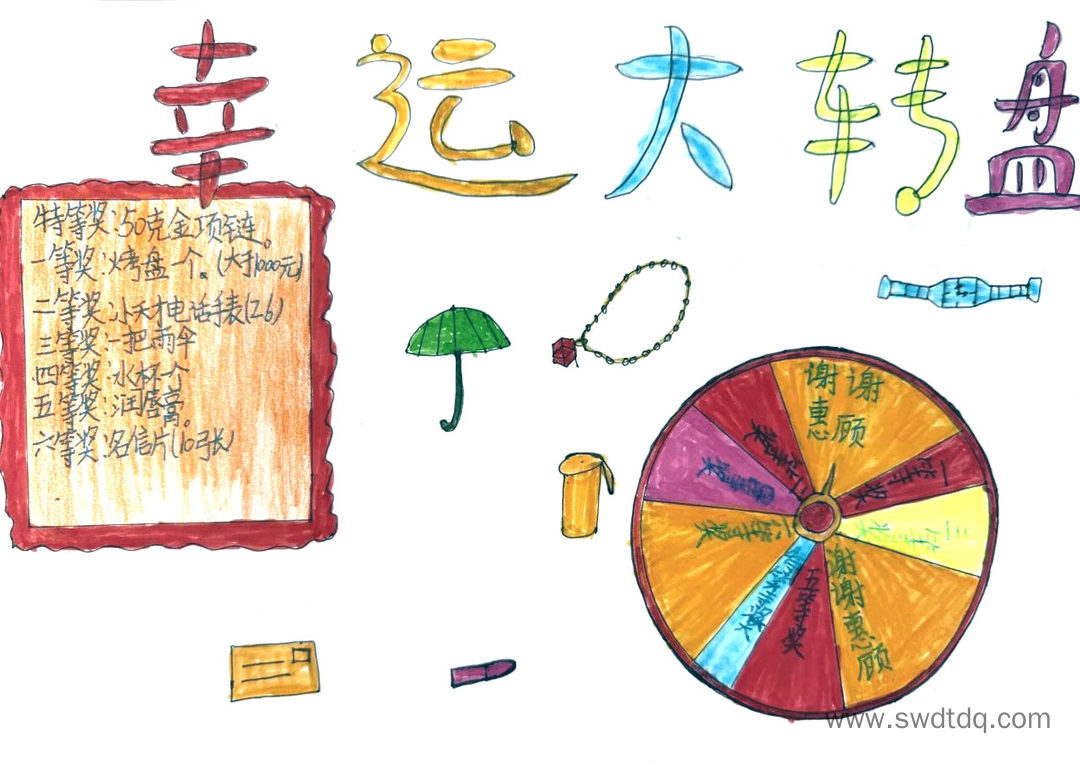 幸运大转盘
特等奖:50克金项链。
一等奖:烤盘一个。(大于1000元)
二等奖:小天才电话手表(Z6)
三等奖:一把雨伞
四等奖:水杯一个
五等奖:润唇膏。
六等奖:名信片(10张)
谢谢惠顾
一等奖
三等奖
谢谢惠顾
五等奖
二等奖
六等奖
www.swdtdq.com